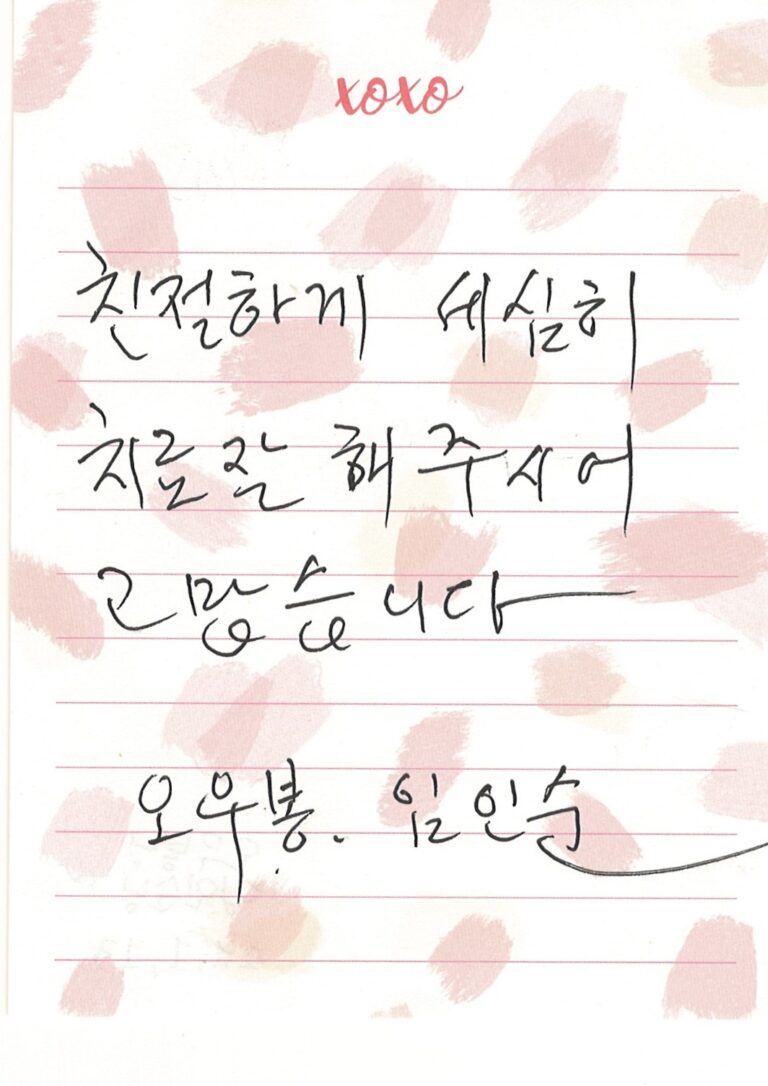 xoxo
친절하게 세심히
치료 잘 해 주시어
고맙습니다
오우봉. 임인수